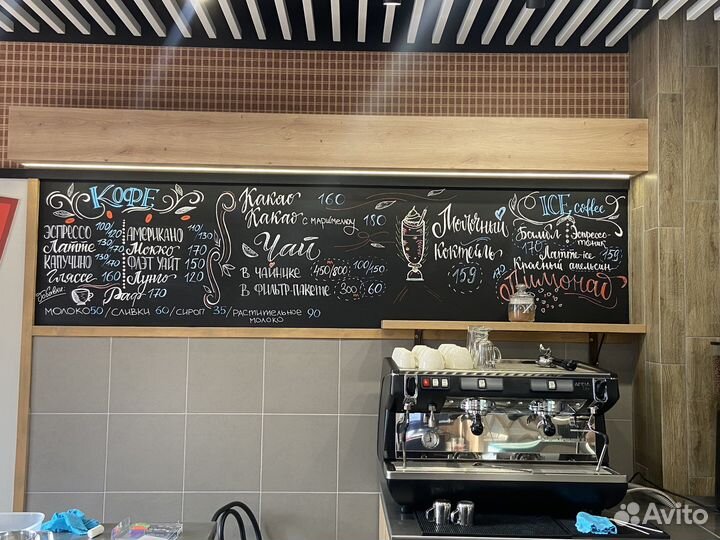 КОФЕ
ЭСПРЕССО 100/120
Латте 130/170
КАПУЧИНО 130/170
Глясse 160
АМЕРИКАНО 110/130
Мокко 170
ФЛЭТ УАЙТ 150
Лунго 120
Раф 170
МОЛОКО 50 / СЛИВКИ 60 / СИРОП 35 / РАСТИТЕЛЬНОЕ МОЛОКО 90
Какао 160
Какао с маршмеллоу 180
Чай
В ЧАЙНИКЕ 450/800 100/150
В ФИЛЬТР-ПАКЕТЕ 300 60
Молочный
коктейль
159
ICE coffee
Бамбл 170
Эспрессо-тоник
Латте-ice 159
Красный апельсин
Лимонад
Avito